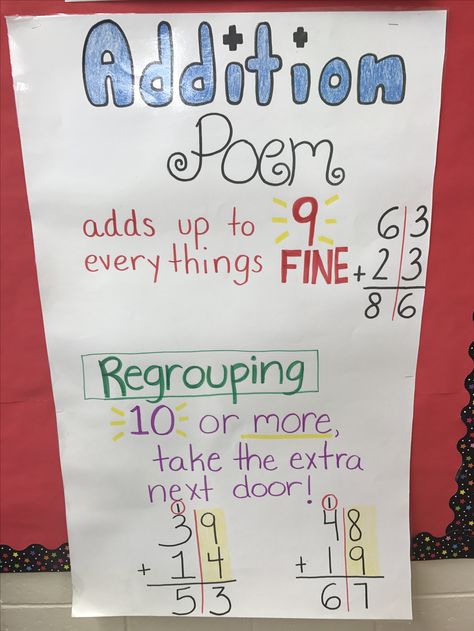 Addition
Poem
adds up to 9
everythings FINE
63
+23
86
Regrouping
10 or more,
take the extra
next door!
1
39
+14
53
1
48
+19
67